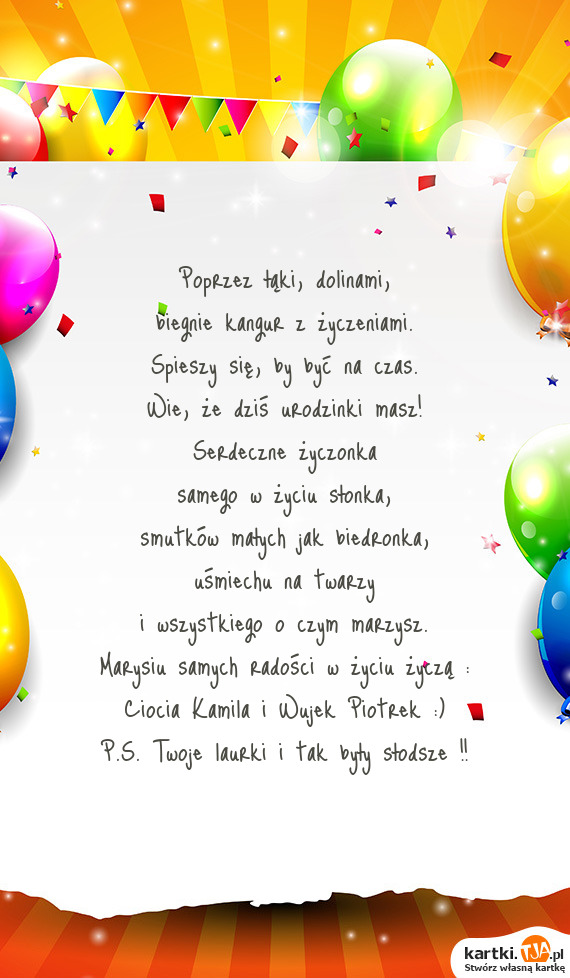 Poprzez łąki, dolinami,
biegnie kangur z życzeniami.
Spieszy się, by być na czas.
Wie, że dziś urodzinki masz!
Serdeczne życzonka
samego w życiu słonka,
smutków małych jak biedronka,
uśmiechu na twarzy
i wszystkiego o czym marzysz.
Marysiu samych radości w życiu życzą :
Ciocia Kamila i Wujek Piotrek :)
P.S. Twoje laurki i tak były słodsze !!
kartki.TJA.pl
Stwórz własną kartkę